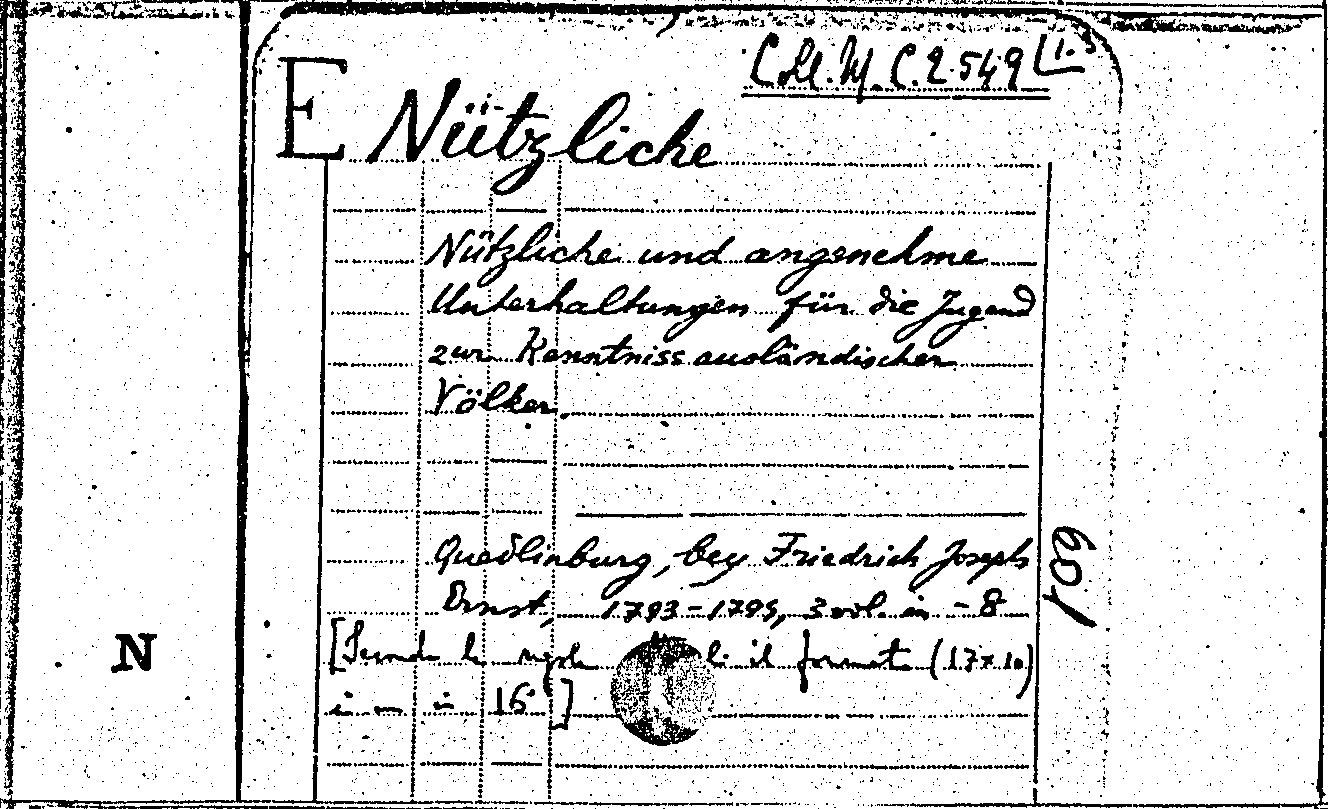 C.M.M.C.2.549
E Nützliche
Nützliche und angenehme
Unterhaltungen für die Jugend
zur Kenntniss ausländischer
Völker.
Quedlinburg, bey Friedrich Joseph
Ernst, 1793-1795, 3 vol. in -8
[Secondo le regole il formato (17x10)
è un in 16°]
109
N